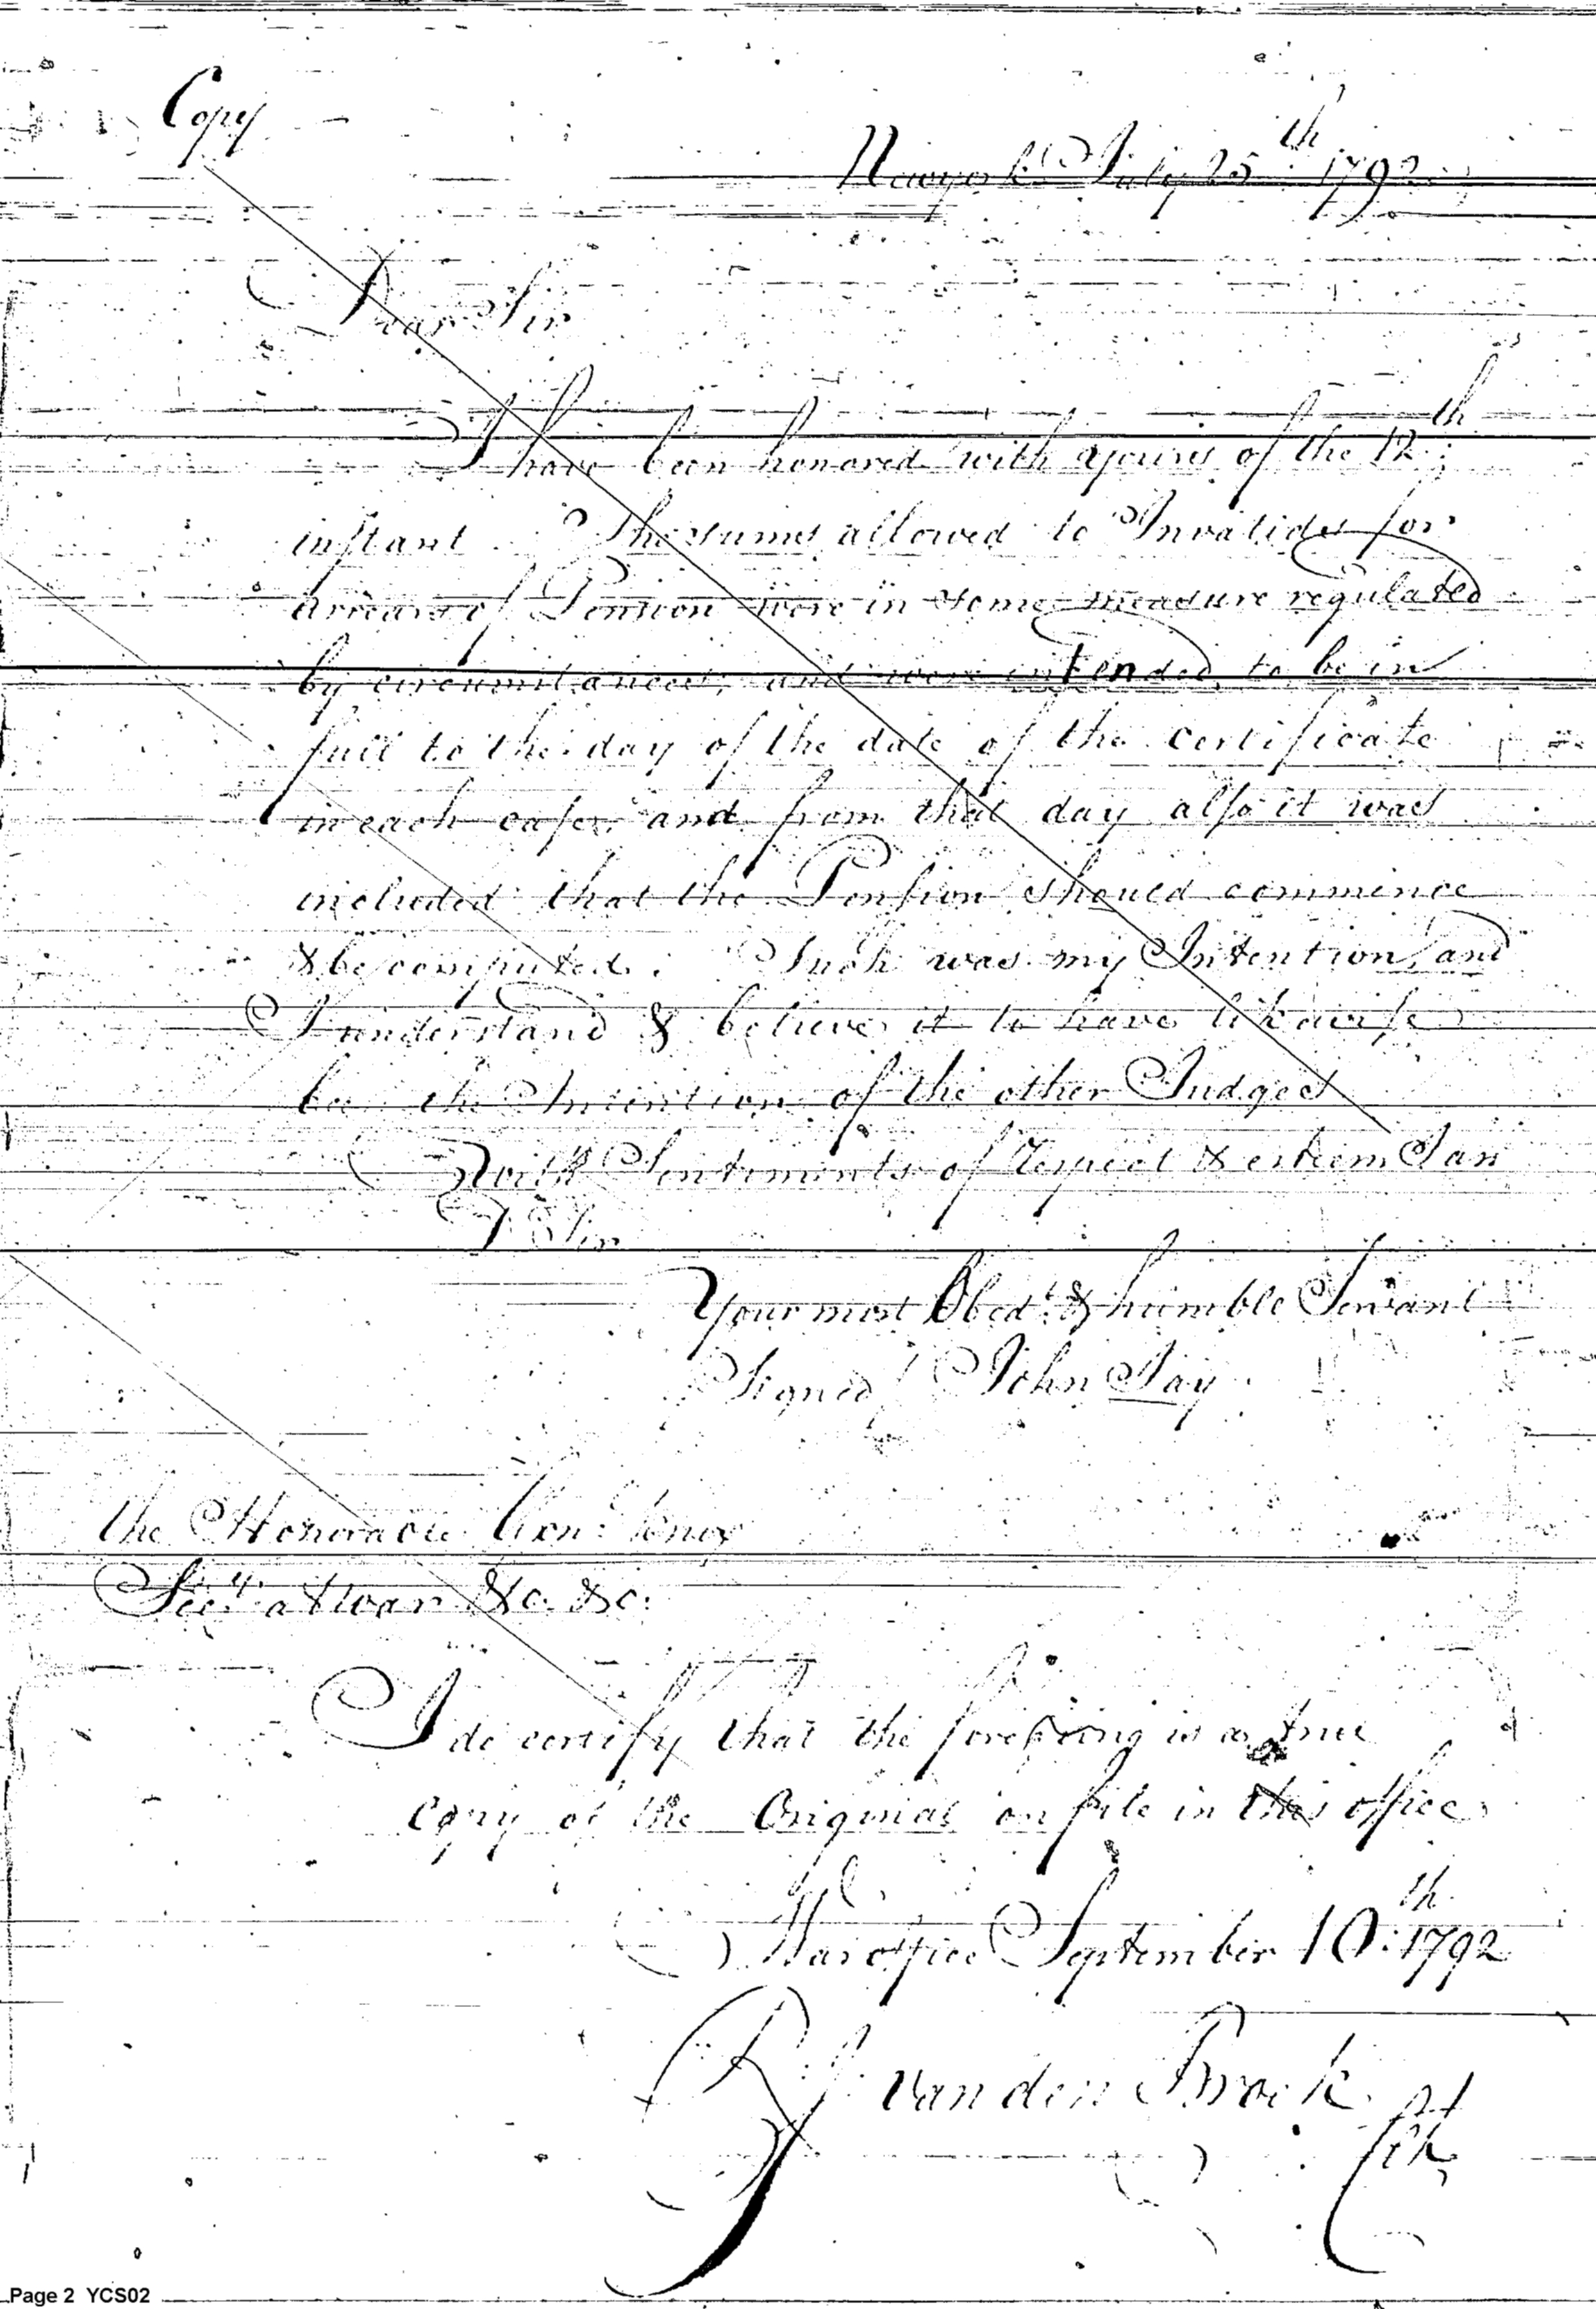 Copy
Newyork July 25th 1792
Dear Sir
I have been honored with yours of the 12th
instant The sums allowed to Invalids for
arrears of Pension were in some measure regulated
by circumstances, and were intended to be in
full to the day of the date of the certificate
in each case, and from that day also it was
included that the Pension should commence
& be computed. Such was my Intention, and
I understand & believe it to have likewise
been the Intention of the other Judges
With Sentiments of Respect & esteem I am
Sir
Your most Obedt & humble Servant
Signed John Jay
the Honorable Genl Knox
Secy at War &c. &c.
I do certify that the foregoing is a true
copy of the Original on file in this office
War office September 10th 1792
J. Vanden Broek
Page 2 YCS02